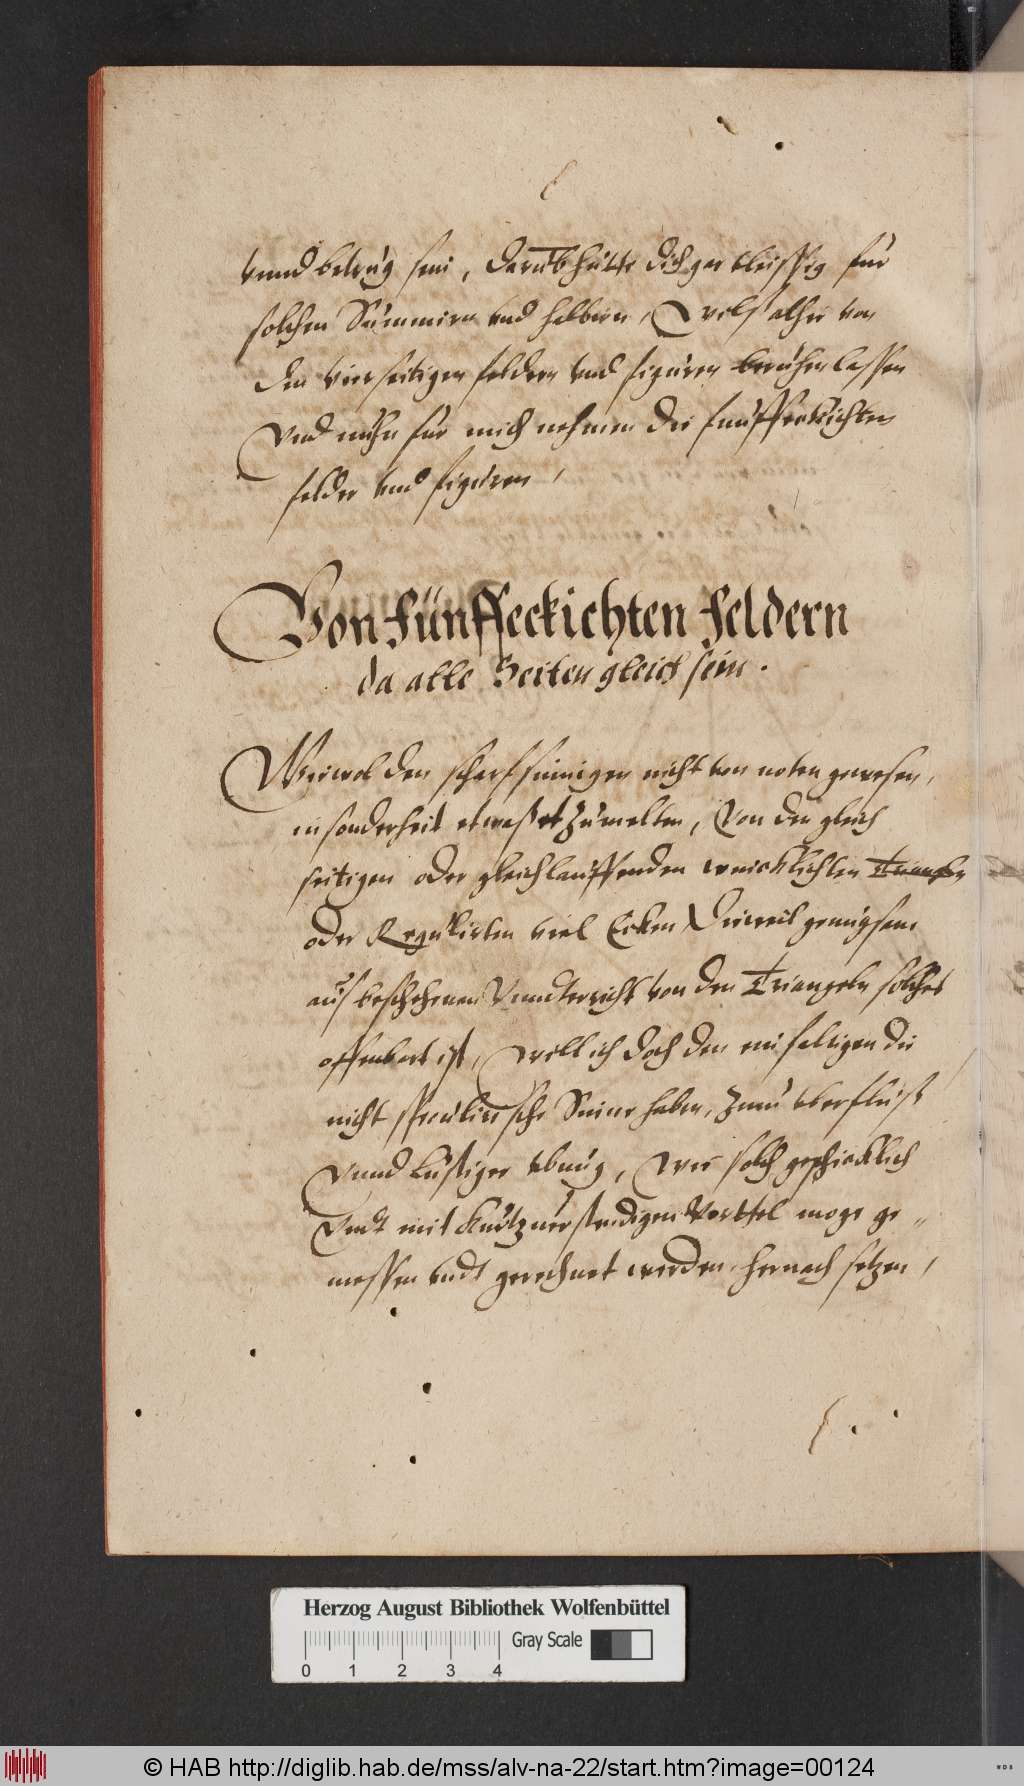 vnnd betrug sein, darumb hütte dich gar vleissig für
solchen Summirn vnd halbirn, Wils alhie von
den vierseitigen feldern vnd figuren beruhen lassen
Vnd nuhn für mich nehmen die funffeckichten
felder vnd figuren,
Von fünffeckichten feldern
da alle Seiten gleich sein.
Wiewol den scharfsinnigen nicht von noten gewesen,
in sonderheit etwaß zumelten, Von den gleich
seitigen oder gleichlauffenden Triangeln
oder Regulirten viel Ecken dieweil genugsam
aus beschehenen Vnndterricht von den Triangeln solches
offenbart ist, will ich doch den einfaltigen die
nicht speculirische Sinne haben, zum vberfluß
Vnnd lustiger vbung, wie solch geschicklich
Vndt mit Vorthel moge ge„
messen vndt gerechnet werden, hernach setzen,
Herzog August Bibliothek Wolfenbüttel
Gray Scale
0 1 2 3 4
© HAB http://diglib.hab.de/mss/alv-na-22/start.htm?image=00124